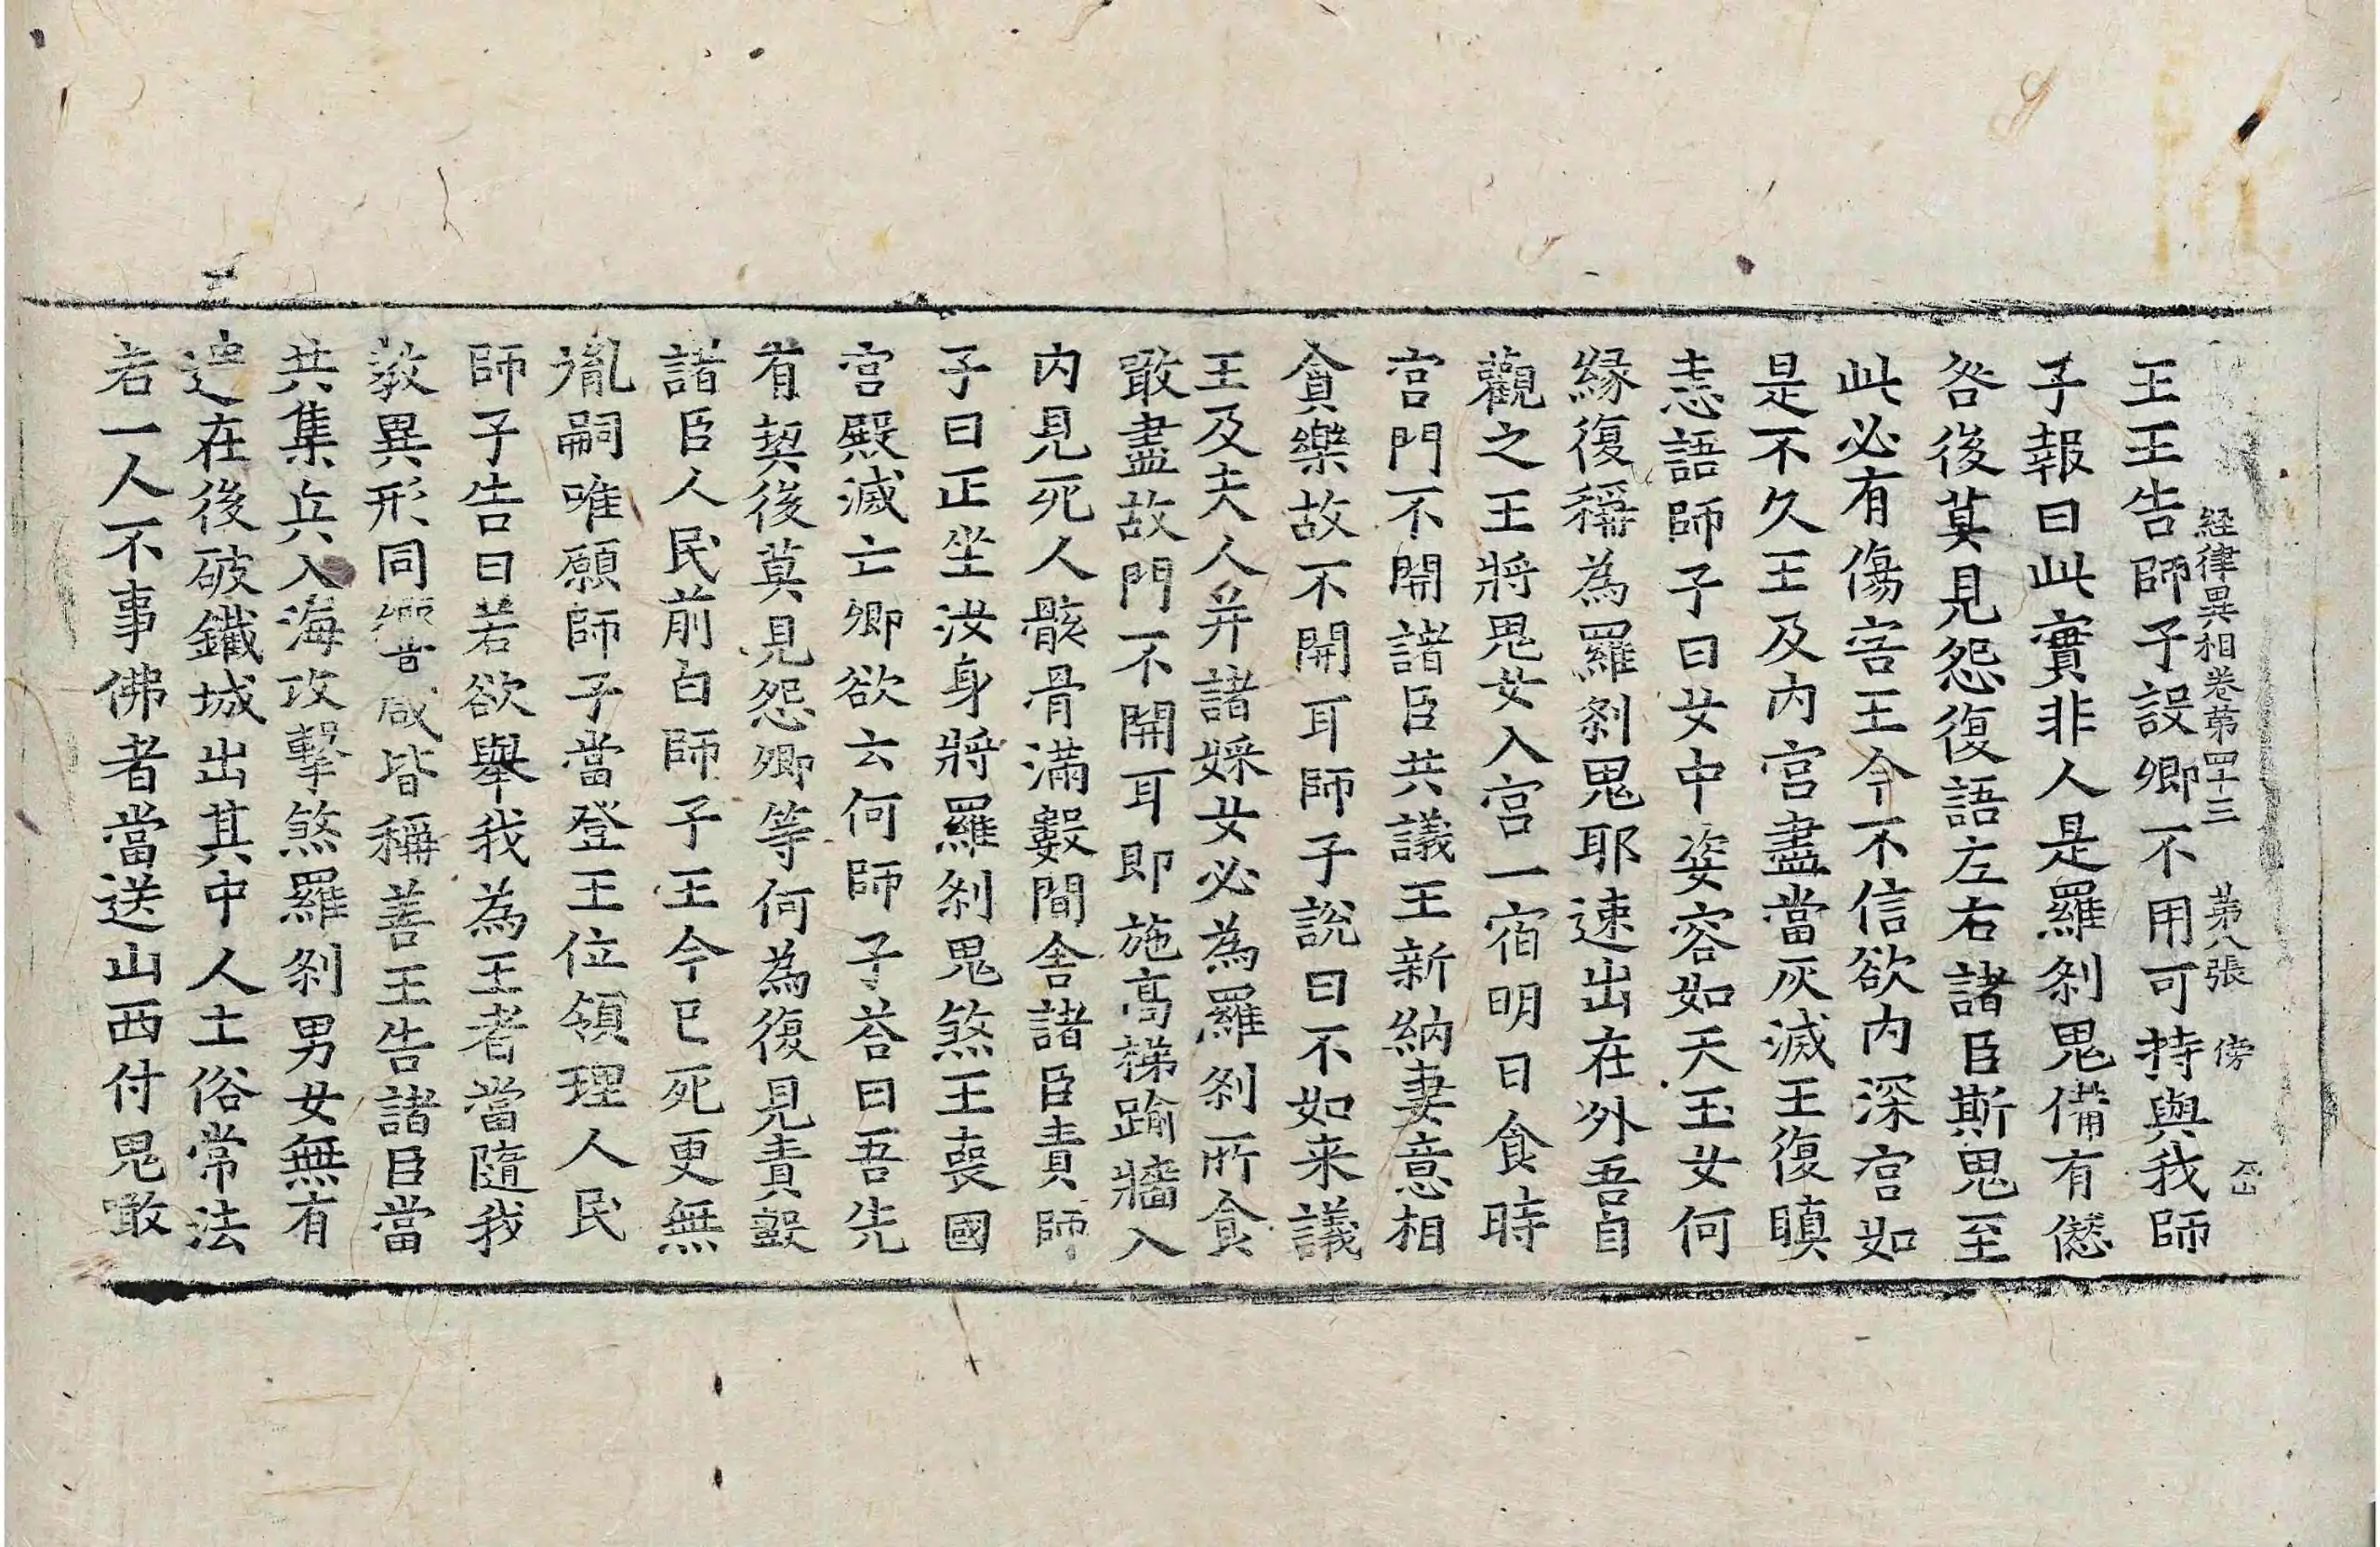 経律異相卷第四十三 苐八張 傍
王王告師子設卿不用可持與我師
子報曰此實非人是羅刹鬼備有僁
咎後莫見怨復語左右諸臣斯鬼至
此必有傷害王今不信欲内深宫如
是不久王及内宫盡當灰滅王復瞋
恚語師子曰女中姿容如天玉女何
縁復稱為羅刹鬼耶速出在外吾自
觀之王將鬼女入宫一宿明日食時
宫門不開諸臣共議王新納妻意相
貪樂故不開耳師子說曰不如来議
王及夫人并諸婇女必為羅刹所食
噉盡故門不開耳即施高梯踰牆入
内見死人骸骨滿數間舍諸臣責師
子曰正坐汝身將羅刹鬼煞王喪國
宫殿滅亡卿欲云何師子荅曰吾先
有契後莫見怨卿等何為復見責毀
諸臣人民前白師子王今已死更無
胤嗣唯願師子當登王位領理人民
師子告曰若欲舉我為王者當隨我
教異形同響咸皆稱善王告諸臣當
共集兵入海攻擊煞羅刹男女無有
遺在後破鐵城出其中人土俗常法
若一人不事佛者當送山西付鬼噉